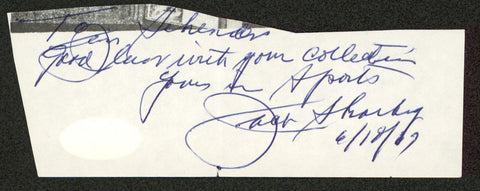 Good luck with your collection
Yours in Sports
Jack Sharkey
6/18/67